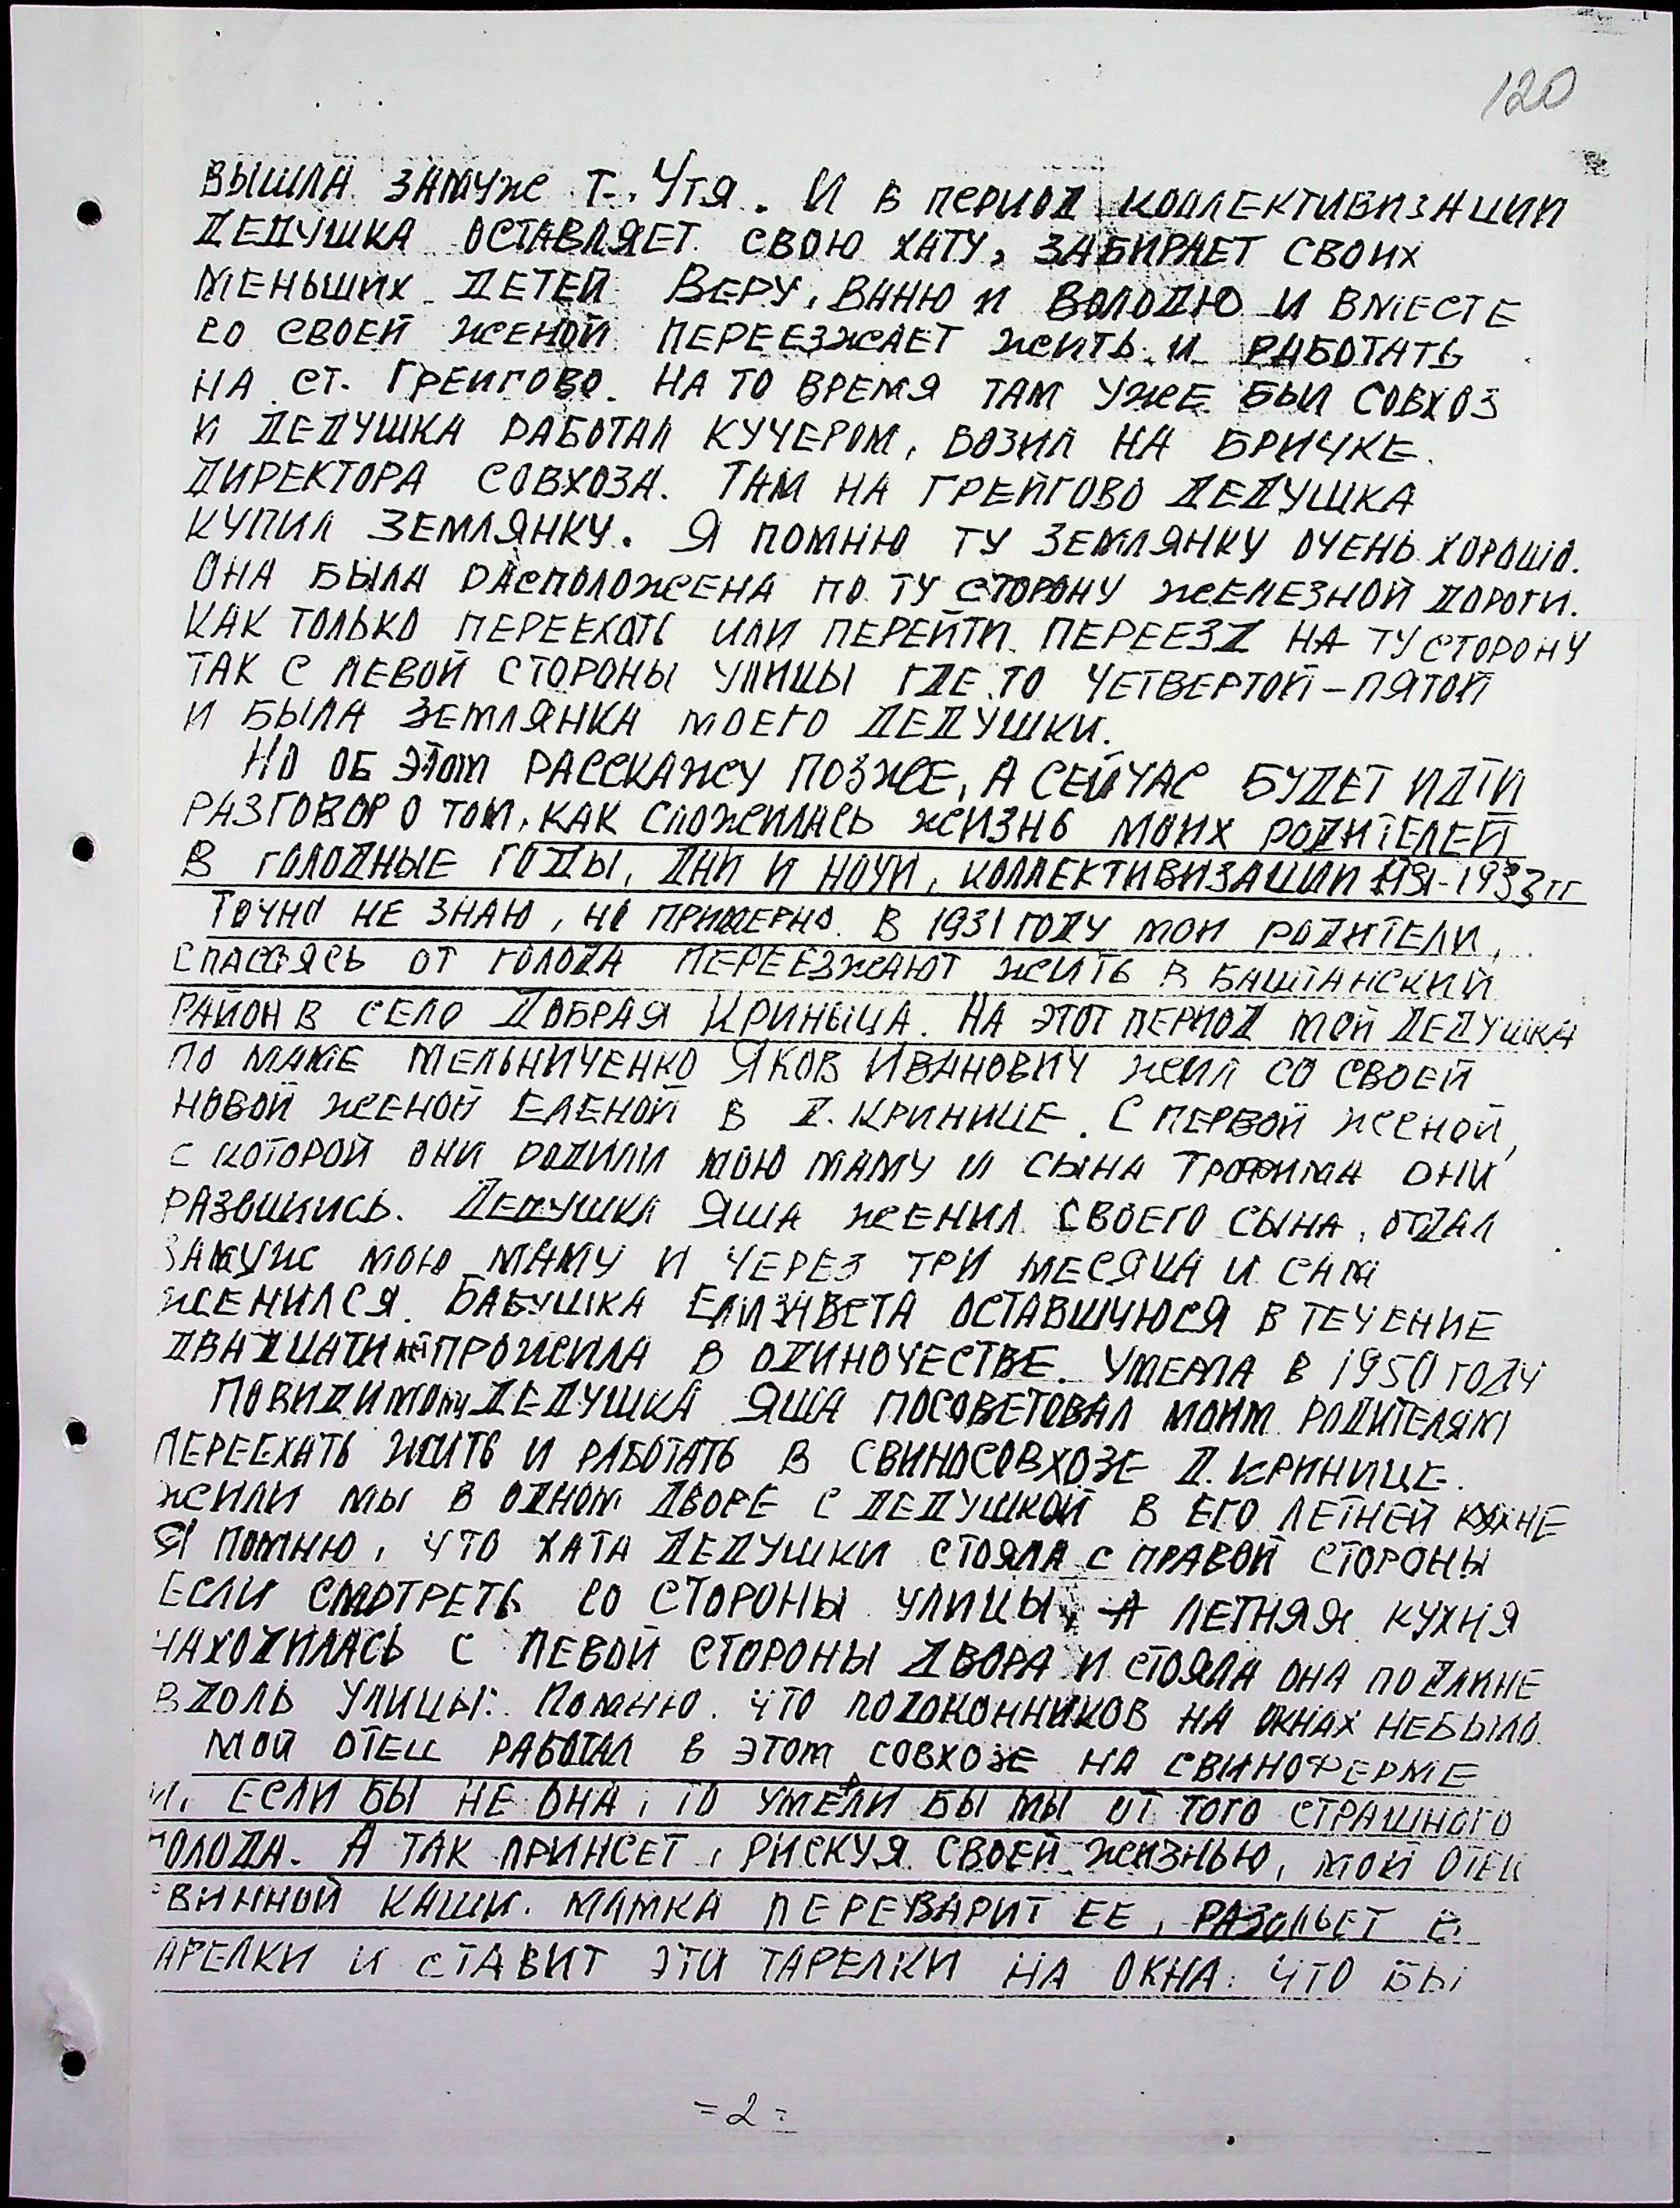 120
ВЫШЛА ЗАМУЖ Т. УТЯ. И В ПЕРИОД КОЛЛЕКТИВИЗАЦИИ
ДЕДУШКА ОСТАВЛЯЕТ СВОЮ ХАТУ, ЗАБИРАЕТ СВОИХ
МЕНЬШИХ ДЕТЕЙ ВЕРУ, ВАНЮ И ВОЛОДЮ И ВМЕСТЕ
СО СВОЕЙ ЖЕНОЙ ПЕРЕЕЗЖАЕТ ЖИТЬ И РАБОТАТЬ
НА СТ. ГРЕИГОВО. НА ТО ВРЕМЯ ТАМ УЖЕ БЫЛ СОВХОЗ
И ДЕДУШКА РАБОТАЛ КУЧЕРОМ, ВОЗИЛ НА БРИЧКЕ
ДИРЕКТОРА СОВХОЗА. ТАМ НА ГРЕЙГОВО ДЕДУШКА
КУПИЛ ЗЕМЛЯНКУ. Я ПОМНЮ ТУ ЗЕМЛЯНКУ ОЧЕНЬ ХОРОШО.
ОНА БЫЛА РАСПОЛОЖЕНА ПО ТУ СТОРОНУ ЖЕЛЕЗНОЙ ДОРОГИ.
КАК ТОЛЬКО ПЕРЕЕХАТЬ ИЛИ ПЕРЕЙТИ ПЕРЕЕЗД НА ТУ СТОРОНУ
ТАК С ЛЕВОЙ СТОРОНЫ УЛИЦЫ ГДЕ ТО ЧЕТВЕРТОЙ-ПЯТОЙ
И БЫЛА ЗЕМЛЯНКА МОЕГО ДЕДУШКИ.
НО ОБ ЭТОМ РАССКАЖУ ПОЗЖЕ, А СЕЙЧАС БУДЕТ ИДТИ
РАЗГОВОР О ТОМ, КАК СЛОЖИЛАСЬ ЖИЗНЬ МОИХ РОДИТЕЛЕЙ
В ГОЛОДНЫЕ ГОДЫ, ДНИ И НОЧИ, КОЛЛЕКТИВИЗАЦИИ 1931-1933 ГГ
ТОЧНО НЕ ЗНАЮ, НО ПРИМЕРНО В 1931 ГОДУ МОИ РОДИТЕЛИ,
СПАСАЯСЬ ОТ ГОЛОДА ПЕРЕЕЗЖАЮТ ЖИТЬ В БАШТАНСКИЙ
РАЙОН В СЕЛО ДОБРАЯ КРИНЫЦА. НА ЭТОТ ПЕРИОД МОЙ ДЕДУШКА
ПО МАМЕ МЕЛЬНИЧЕНКО ЯКОВ ИВАНОВИЧ ЖИЛ СО СВОЕЙ
НОВОЙ ЖЕНОЙ ЕЛЕНОЙ В Д. КРИНИЦЕ. С ПЕРВОЙ ЖЕНОЙ,
С КОТОРОЙ ОНИ РОДИЛИ МОЮ МАМУ И СЫНА ТРОФИМА ОНИ
РАЗОШЛИСЬ. ДЕДУШКА ЯША ЖЕНИЛ СВОЕГО СЫНА, ОТДАЛ
ЗАМУЖ МОЮ МАМУ И ЧЕРЕЗ ТРИ МЕСЯЦА И САМ
ЖЕНИЛСЯ. БАБУШКА ЕЛИЗАВЕТА ОСТАВШУЮСЯ В ТЕЧЕНИЕ
ДВАДЦАТИ ЛЕТ ПРОЖИЛА В ОДИНОЧЕСТВЕ. УМЕРЛА В 1950 ГОДУ
ПОВИДИМОМУ ДЕДУШКА ЯША ПОСОВЕТОВАЛ МОИМ РОДИТЕЛЯМ
ПЕРЕЕХАТЬ ЖИТЬ И РАБОТАТЬ В СВИНОСОВХОЗЕ Д. КРИНИЦЕ.
ЖИЛИ МЫ В ОДНОМ ДВОРЕ С ДЕДУШКОЙ В ЕГО ЛЕТНЕЙ КУХНЕ
Я ПОМНЮ, ЧТО ХАТА ДЕДУШКИ СТОЯЛА С ПРАВОЙ СТОРОНЫ
ЕСЛИ СМОТРЕТЬ СО СТОРОНЫ УЛИЦЫ, А ЛЕТНЯЯ КУХНЯ
НАХОДИЛАСЬ С ЛЕВОЙ СТОРОНЫ ДВОРА И СТОЯЛА ОНА ПО ДЛИНЕ
ВДОЛЬ УЛИЦЫ. ПОМНЮ, ЧТО ПОДОКОННИКОВ НА ОКНАХ НЕБЫЛО.
МОЙ ОТЕЦ РАБОТАЛ В ЭТОМ СОВХОЗЕ НА СВИНОФЕРМЕ
И, ЕСЛИ БЫ НЕ ОНА, ТО УМЕРЛИ БЫ МЫ ОТ ТОГО СТРАШНОГО
ГОЛОДА. А ТАК ПРИНСЕТ, РИСКУЯ СВОЕЙ ЖИЗНЬЮ, МОЙ ОТЕЦ
СВИННОЙ КАШИ. МАМКА ПЕРЕВАРИТ ЕЕ, РАЗОЛЬЕТ В
ТАРЕЛКИ И СТАВИТ ЭТИ ТАРЕЛКИ НА ОКНА, ЧТО БЫ
=2=